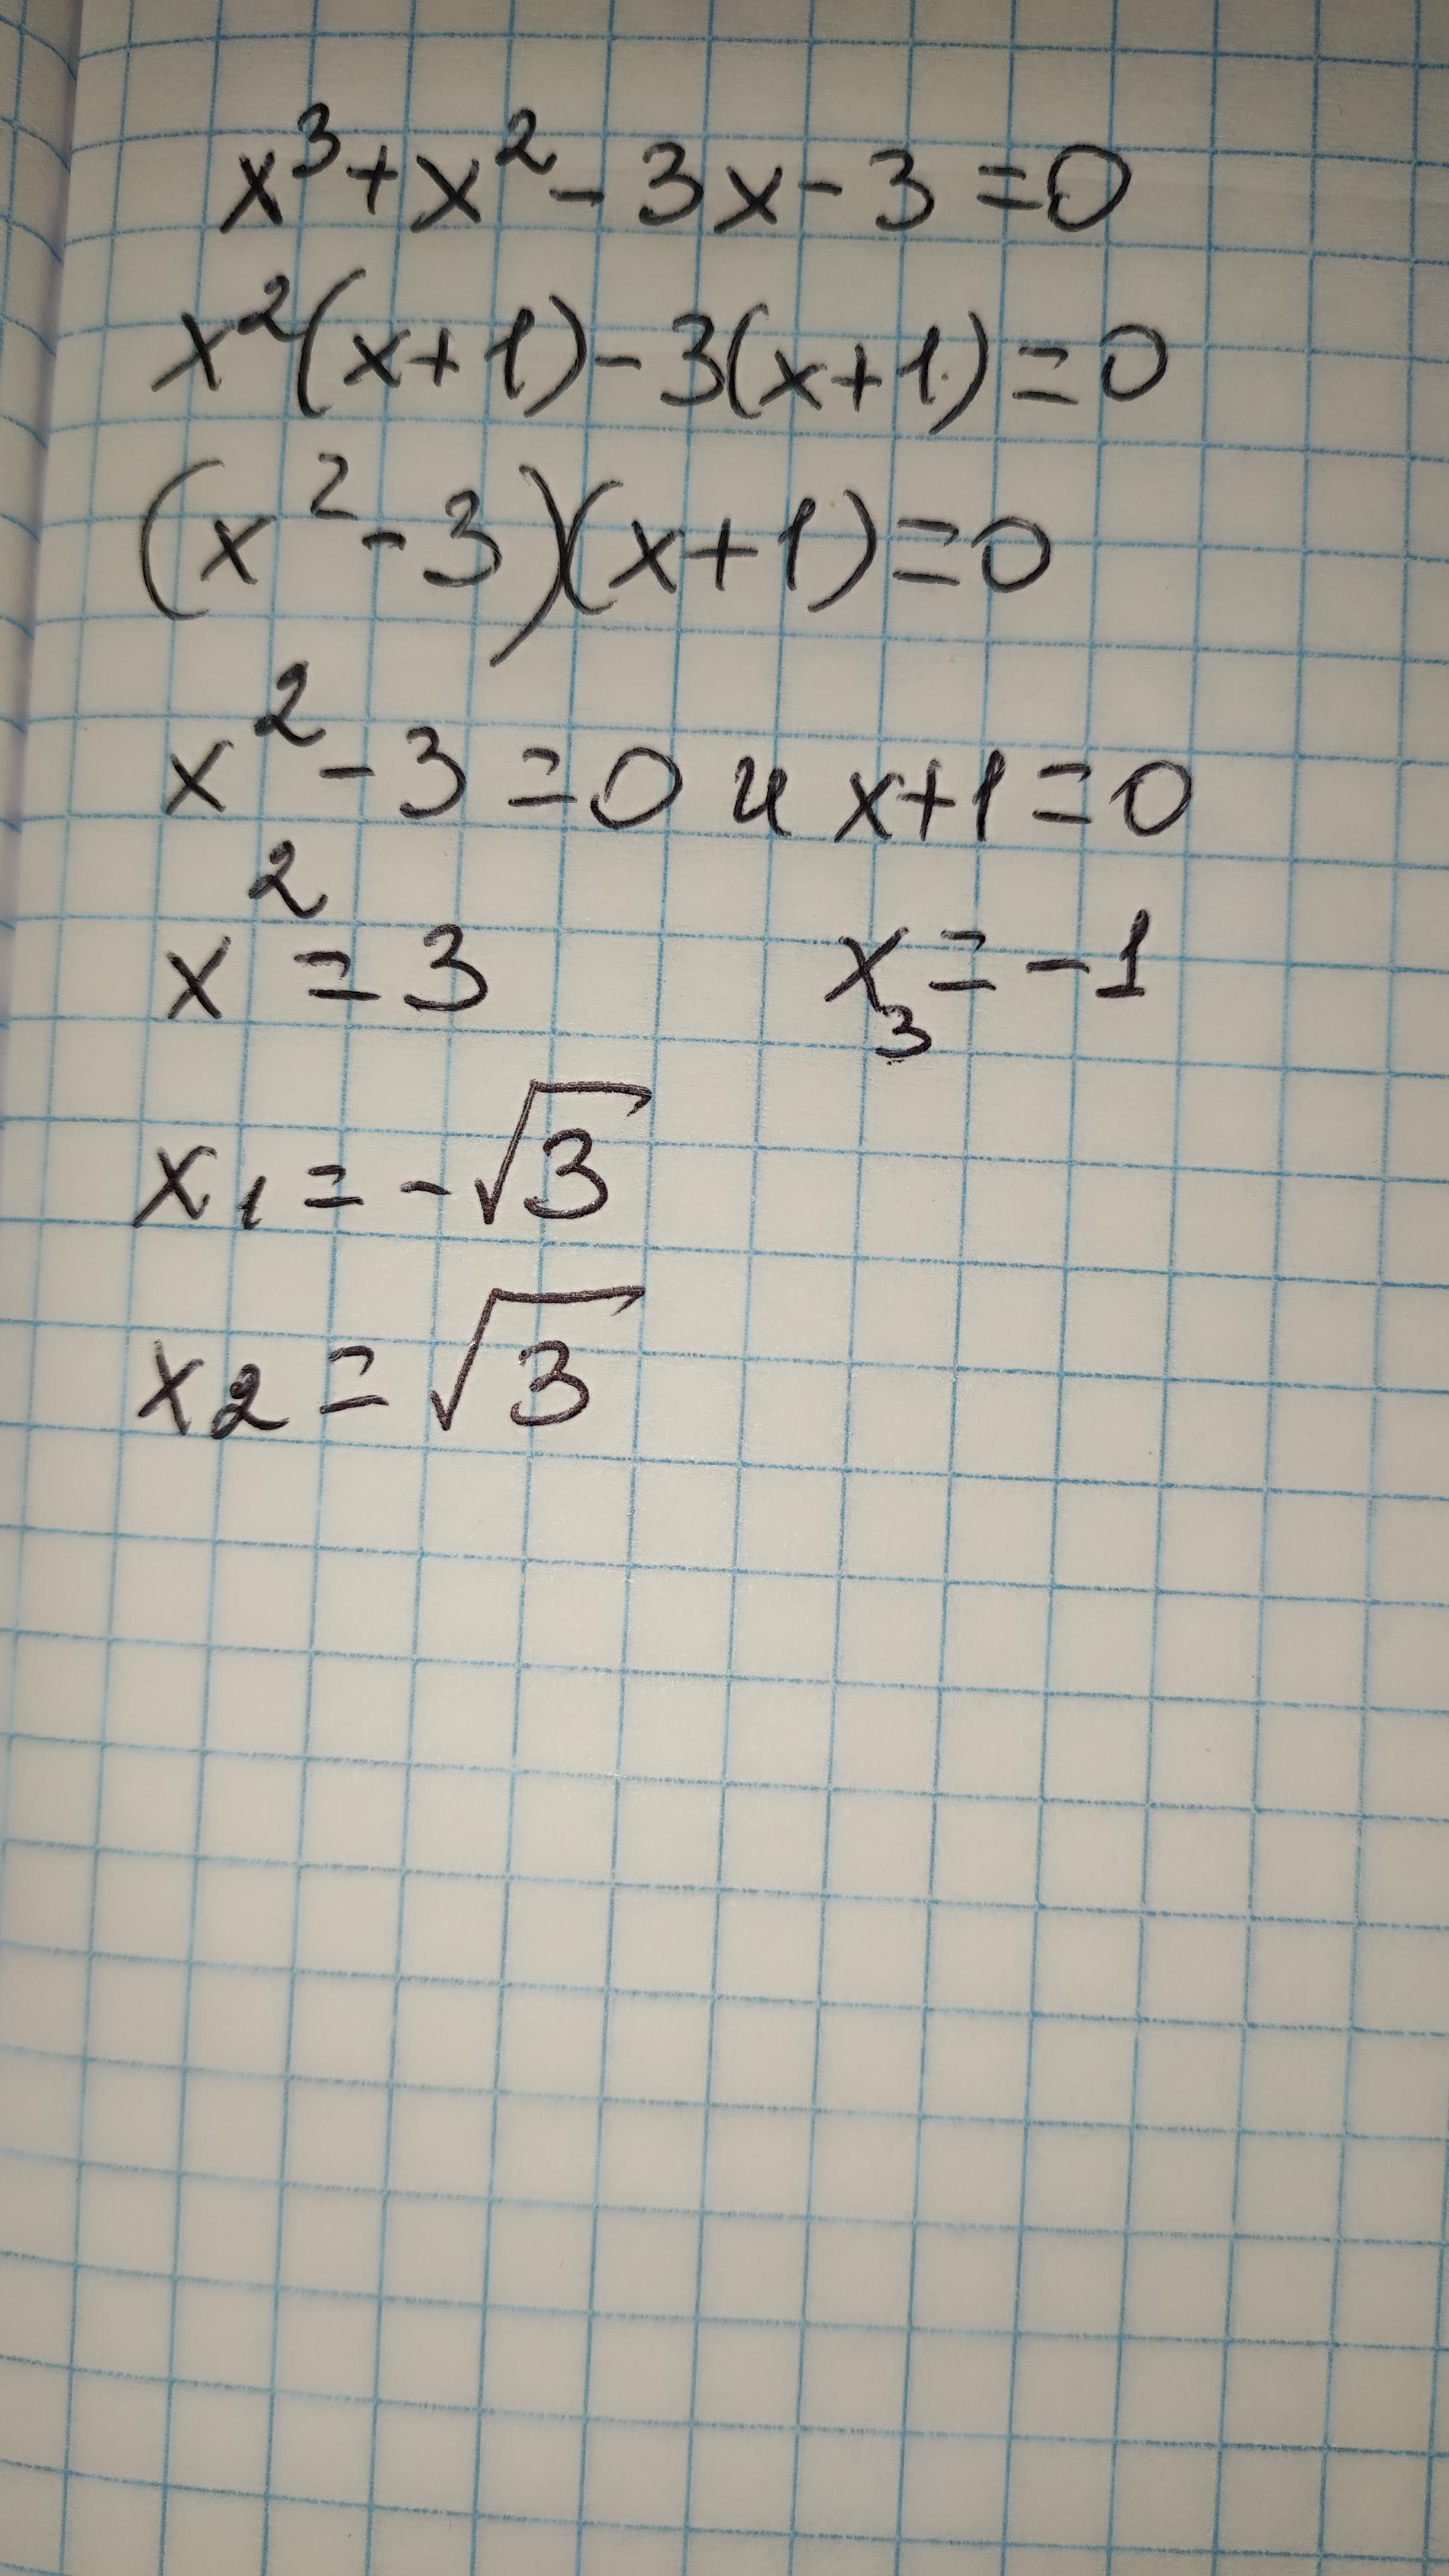 x³+x²-3x-3=0
x²(x+1)-3(x+1)=0
(x²-3)(x+1)=0
x²-3=0 и x+1=0
x²=3 x₃=-1
x₁=-√3
x₂=√3